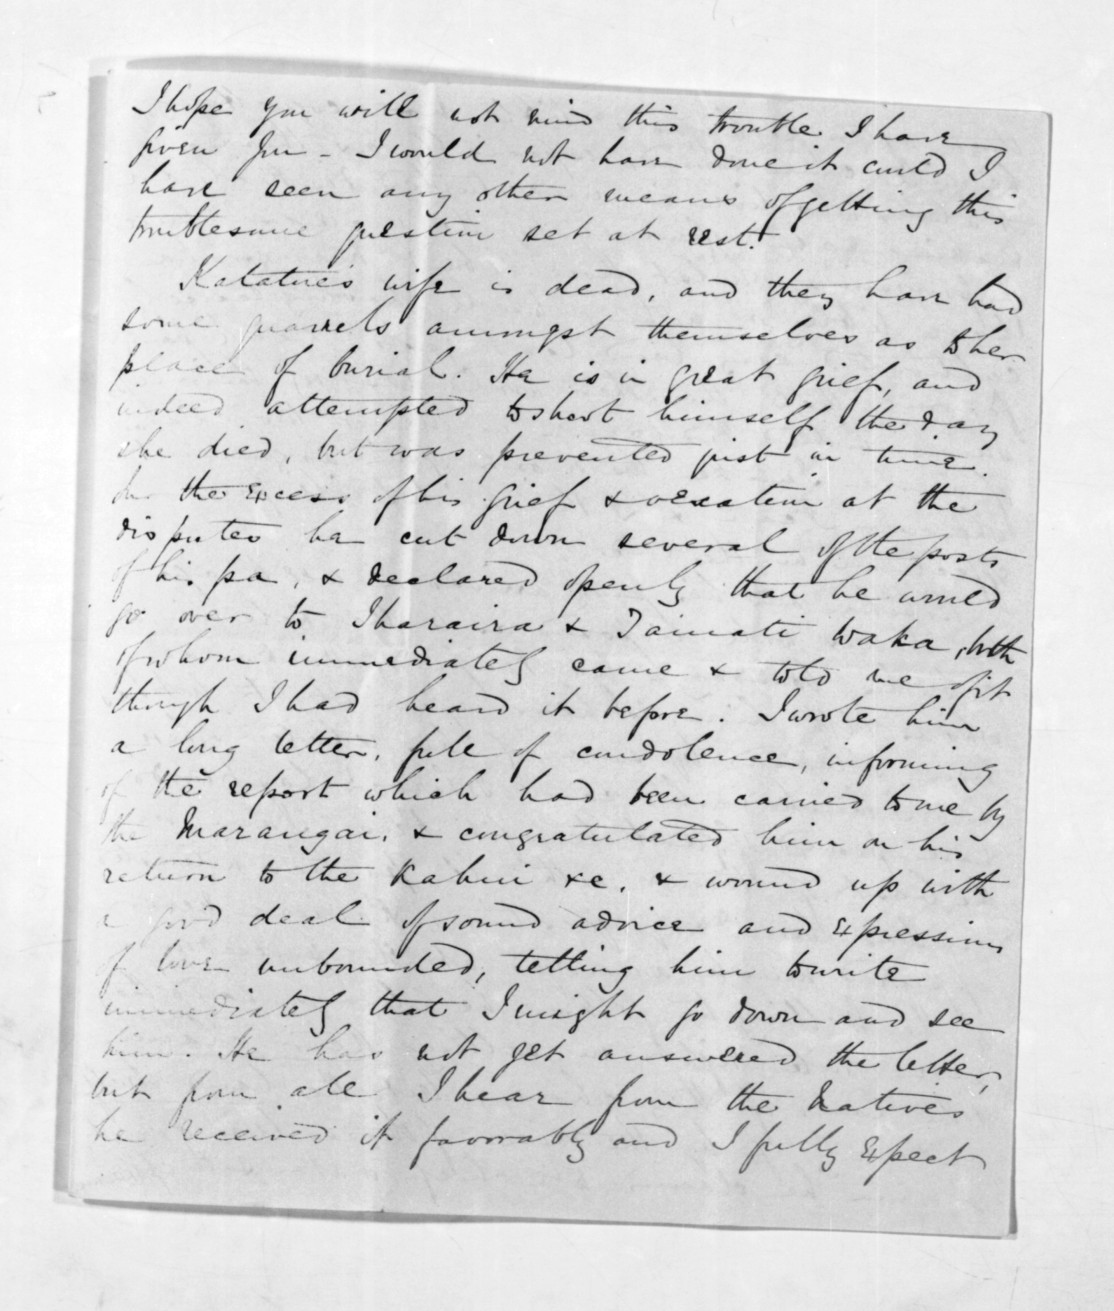 I hope you will not mind this trouble I have
given you - I would not have done it could I
have seen any other means of getting this
troublesome question set at rest.
Katatore's wife is dead, and they have had
some quarrels amongst themselves as to her
place of burial. He is in great grief, and
indeed attempted to shoot himself the day
she died, but was prevented just in time.
In the excess of his grief & vexation at the
disputes he cut down several of the posts
of his pa, & declared openly that he would
go over to Iharaira & Tamati Waka, both
of whom immediately came & told me of it
though I had heard it before. I wrote him
a long letter, full of condolence, informing
of the report which had been carried to me by
the Marangai, & congratulated him on his
return to the Kahui &c. & wound up with
a good deal of sound advice and expressions
of love unbounded, telling him to write
immediately that I might go down and see
him. He has not yet answered the letter,
but from all I hear from the Natives
he received it favorably and I fully expect